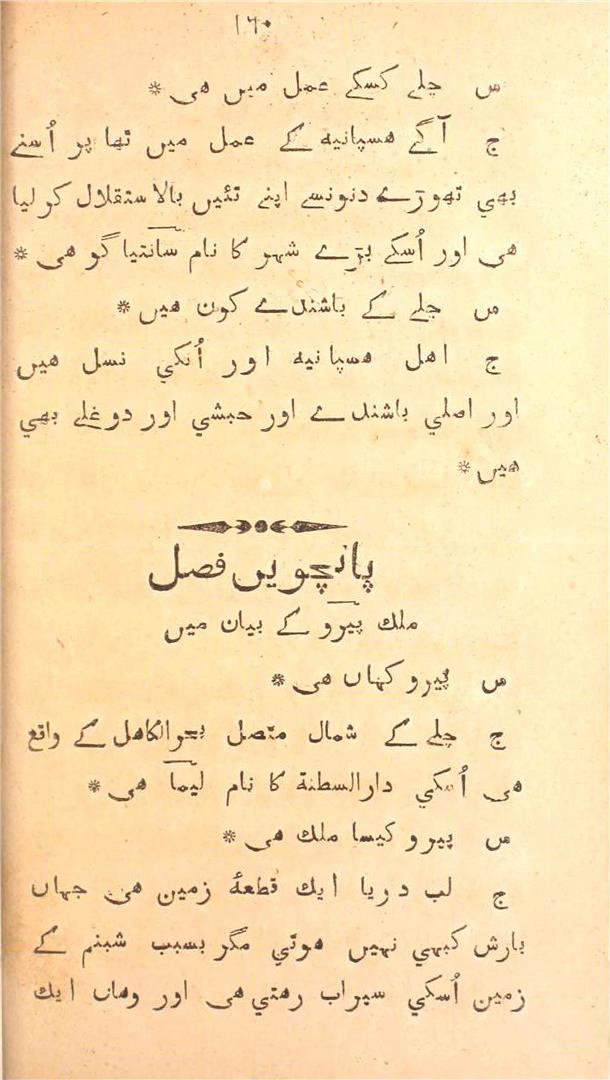 ١٦٠
س چلے کسکے عمل میں هی *
ج آگے هسپانیه کے عمل میں تھا پر اُسنے
بھي تھوڑے دنونسے اپنے تئیں بالاستقلال کو لیا
هی اور اُسکے بڑے شہر کا نام سانتیاگو هی *
س چلے کے باشندے کون هیں *
ج اهل هسپانیه اور اُنکي نسل هیں
اور اصلي باشندے اور حبشي اور دوغلے بھي
هیں *
پانچویں فصل
ملك پیرو کے بیان میں
س پیرو کہاں هی *
ج چلے کے شمال متصل بحرالکاهل کے واقع
هی اُسکي دارالسطنة کا نام لیما هی *
س پیرو کیسا ملك هی *
ج لب دریا ایك قطعهٔ زمین هی جہاں
بارش کبھي نہیں هوتي مگر بسبب شبنم کے
زمین اُسکي سیراب رهتي هی اور وهاں ایك